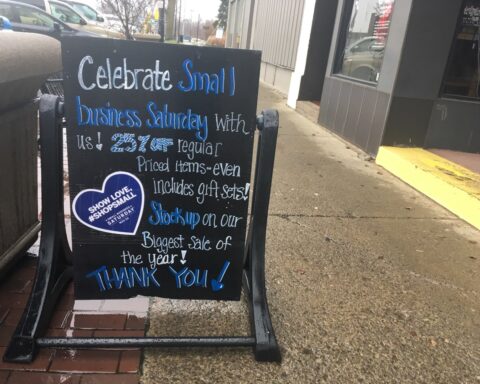 Celebrate Small
business Saturday with
us! 25% off regular
Priced items-even
includes gift sets!
Stock up on our
Biggest sale of
the year!
THANK YOU!
SHOW LOVE,
#SHOPSMALL
SATURDAY